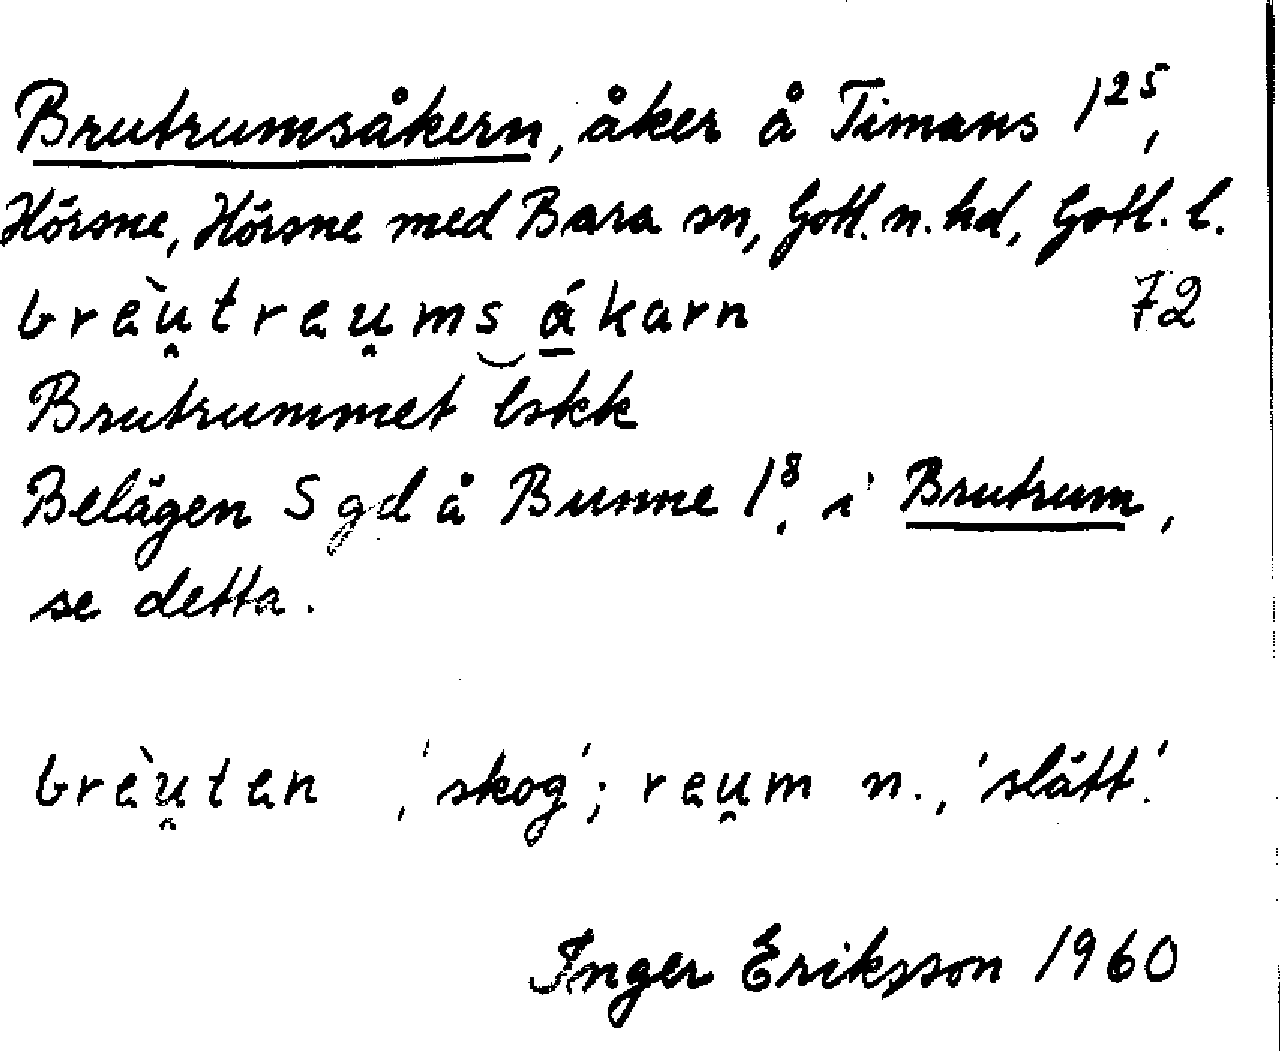 Brutrumsåkern, åker å Timans 1²⁵,
Hörsne, Hörsne med Bara sn, Gotl. n. hd, Gotl. l.
brèu̯treu̯ms‿á̱karn 72
Brutrummet lskk
Belägen S gd å Bunne 1⁸, i Brutrum,
se detta.
brèu̯ten , 'skog'; reu̯m n., 'slått'.
Inger Eriksson 1960